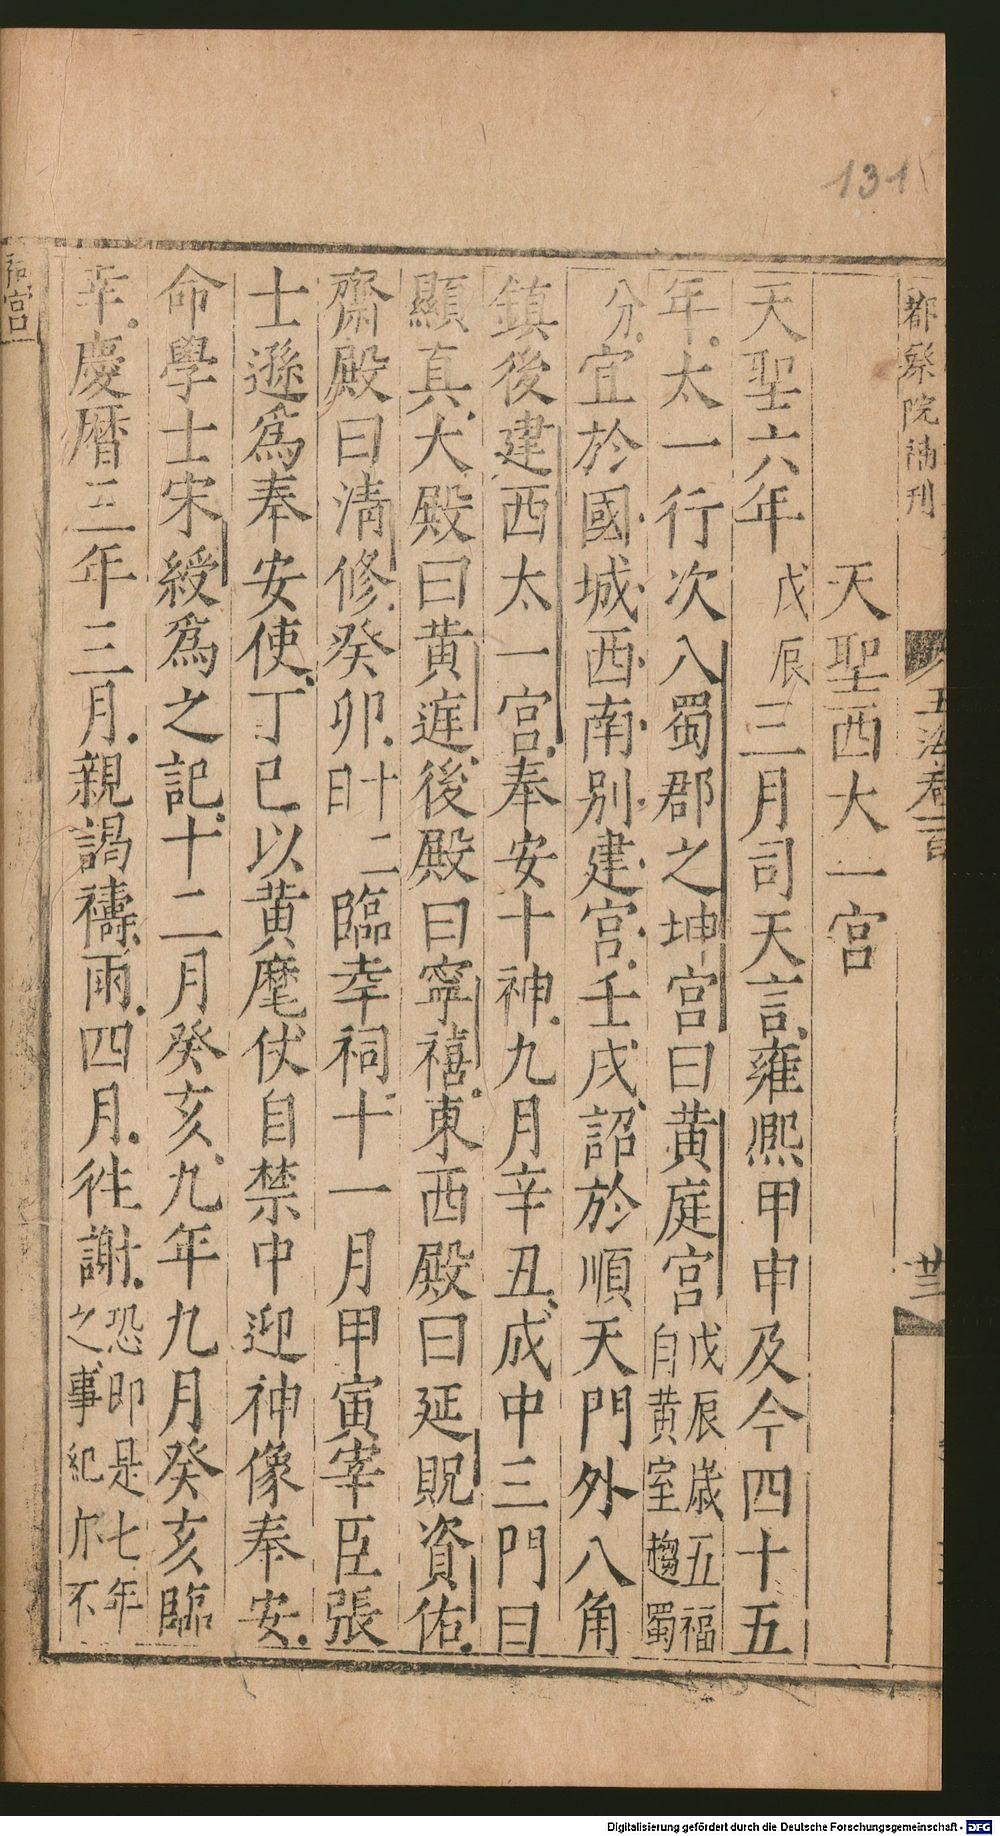 131
都察院補刊
玉海卷一百
廿三
天聖西太一宮
天聖六年戊辰三月司天言雍熙甲申及今四十五
年太一行次入蜀郡之坤宮曰黄庭宮戊辰歲五福自黄室趨蜀
分宜於國城西南别建宮壬戌詔於順天門外八角
鎮後建西太一宮奉安十神九月辛丑成中三門曰
顯真大殿曰黄庭後殿曰寧禧東西殿曰延貺資佑
齋殿曰清修癸卯十二日臨幸祠十一月甲寅宰臣張
士遜爲奉安使丁巳以黄麾仗自禁中迎神像奉安
命學士宋綬爲之記十二月癸亥九年九月癸亥臨
幸慶曆三年三月親謁禱雨四月徃謝恐即是七年之事紀尓不
祠宮
Digitalisierung gefördert durch die Deutsche Forschungsgemeinschaft - DFG